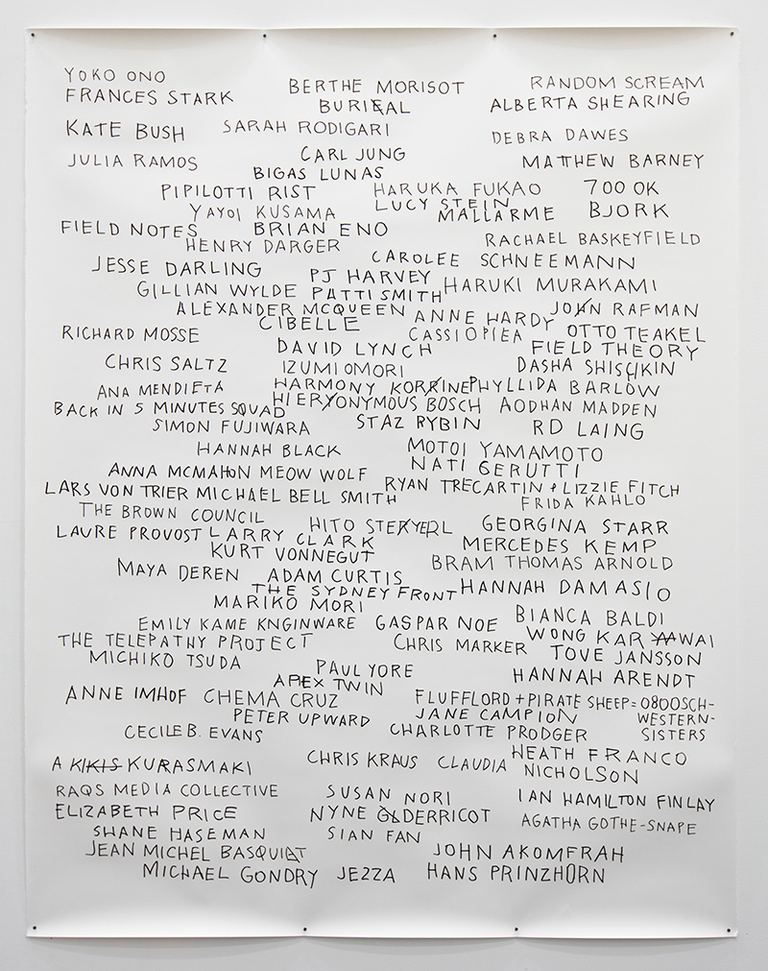 YOKO ONO BERTHE MORISOT RANDOM SCREAM
FRANCES STARK BURIAL ALBERTA SHEARING
KATE BUSH SARAH RODIGARI DEBRA DAWES
JULIA RAMOS CARL JUNG MATTHEW BARNEY
BIGAS LUNAS
PIPILOTTI RIST HARUKA FUKAO 700 OK
YAYOI KUSAMA LUCY STEIN MALLARME BJORK
FIELD NOTES BRIAN ENO
HENRY DARGER RACHAEL BASKEYFIELD
JESSE DARLING CAROLEE SCHNEEMANN
PJ HARVEY
GILLIAN WYLDE PATTI SMITH HARUKI MURAKAMI
ALEXANDER MCQUEEN ANNE HARDY JON RAFMAN
RICHARD MOSSE CIBELLE CASSIOPIEA OTTO TEAKEL
DAVID LYNCH FIELD THEORY
CHRIS SALTZ IZUMI OMORI DASHA SHISHKIN
ANA MENDIETA HARMONY KORINE PHYLLIDA BARLOW
BACK IN 5 MINUTES SQUAD HIERONYMOUS BOSCH AODHAN MADDEN
SIMON FUJIWARA STAZ RYBIN RD LAING
HANNAH BLACK MOTOI YAMAMOTO
ANNA MCMAHON MEOW WOLF NATI GERUTTI
LARS VON TRIER MICHAEL BELL SMITH RYAN TRECARTIN + LIZZIE FITCH
FRIDA KAHLO
THE BROWN COUNCIL HITO STEYERL GEORGINA STARR
LAURE PROVOST LARRY CLARK MERCEDES KEMP
KURT VONNEGUT BRAM THOMAS ARNOLD
MAYA DEREN ADAM CURTIS
THE SYDNEY FRONT HANNAH DAMASIO
MARIKO MORI
EMILY KAME KNGINWARE GASPAR NOE BIANCA BALDI
THE TELEPATHY PROJECT CHRIS MARKER WONG KAR WAI
MICHIKO TSUDA PAUL YORE TOVE JANSSON
APEX TWIN HANNAH ARENDT
ANNE IMHOF CHEMA CRUZ FLUFFLORD + PIRATE SHEEP = 0800SCH-
PETER UPWARD JANE CAMPION WESTERN-
CECILE B. EVANS CHARLOTTE PRODGER SISTERS
HEATH FRANCO
A KIKIS KURASMAKI CHRIS KRAUS CLAUDIA NICHOLSON
RAQS MEDIA COLLECTIVE SUSAN NORI IAN HAMILTON FINLAY
ELIZABETH PRICE NYNE DERRICOT AGATHA GOTHE-SNAPE
SHANE HASEMAN SIAN FAN
JEAN MICHEL BASQUIAT JOHN AKOMFRAH
MICHAEL GONDRY JEZZA HANS PRINZHORN